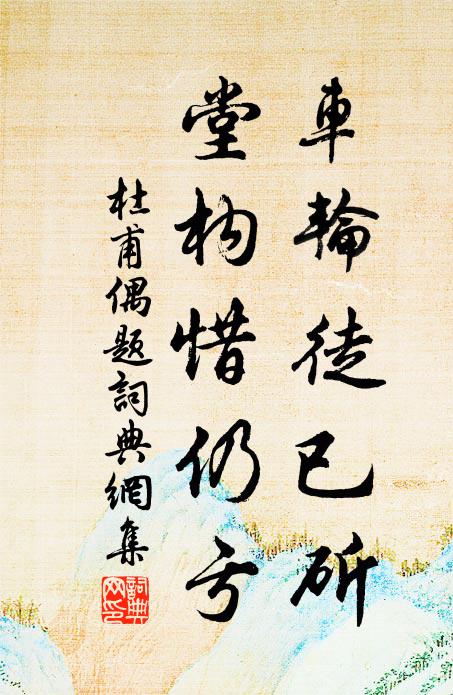 車輪徒已斫
堂构惜仍亏
杜甫偶题詞典網集
詞典